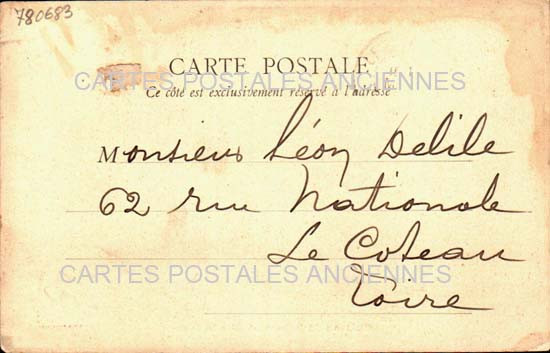 780683
CARTE POSTALE
CARTES POSTALES ANCIENNES
Ce côté est exclusivement réservé à l'adresse
Monsieur Léon Delile
62 rue Nationale
Le Coteau
CARTES POSTALES ANCIENNES
Loire